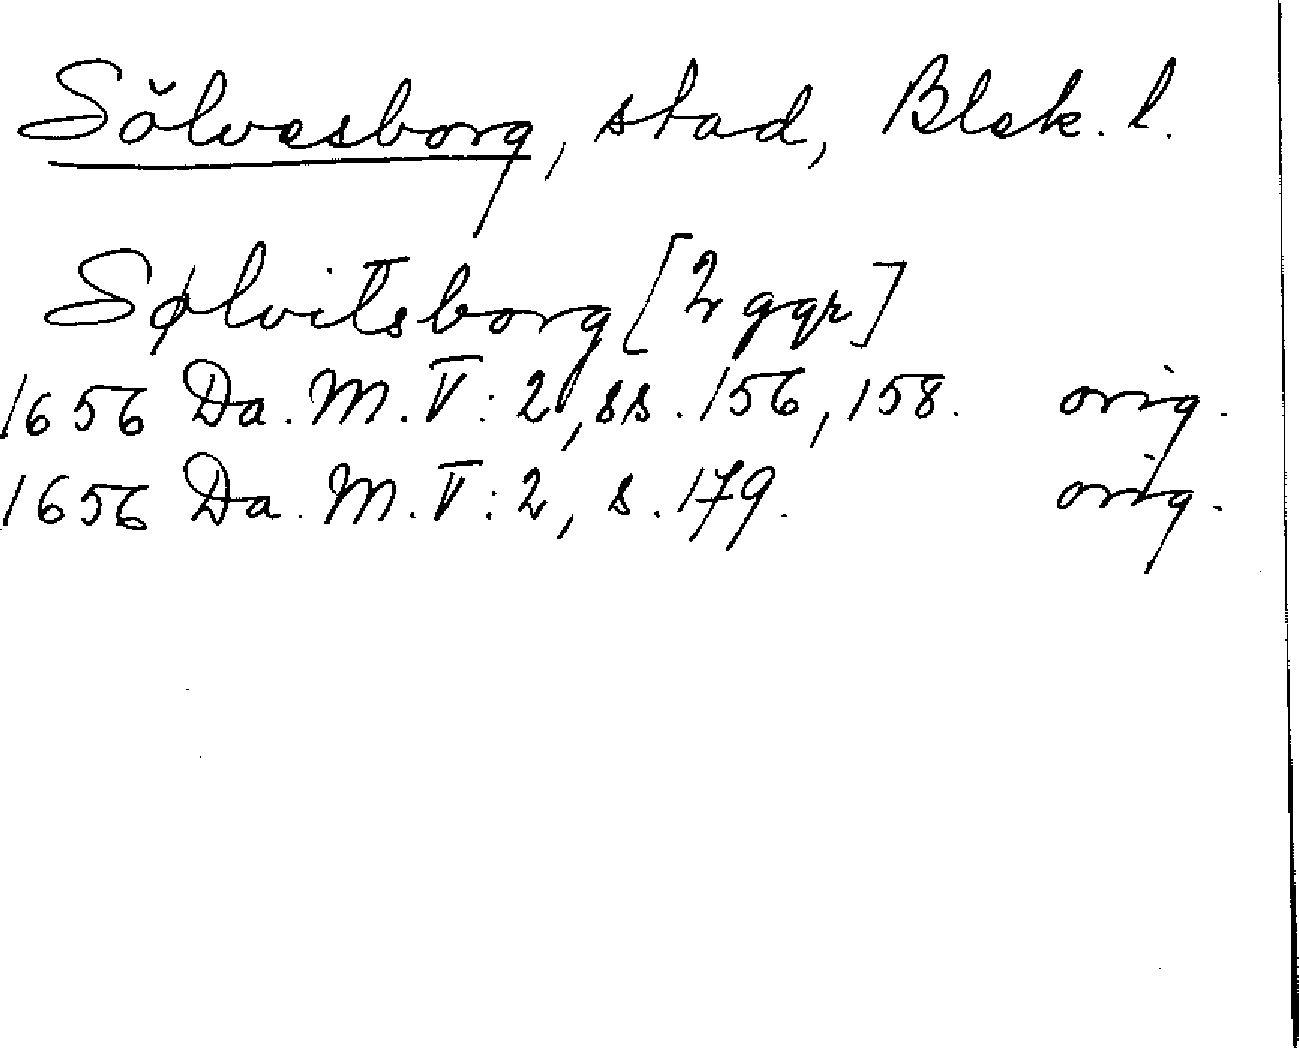 Sölvesborg, stad, Blek. l.
Sølvitsborg [2 ggr]
1656 Da. M. V: 2, ss. 156, 158. orig.
1656 Da. M. V: 2, s. 179. orig.